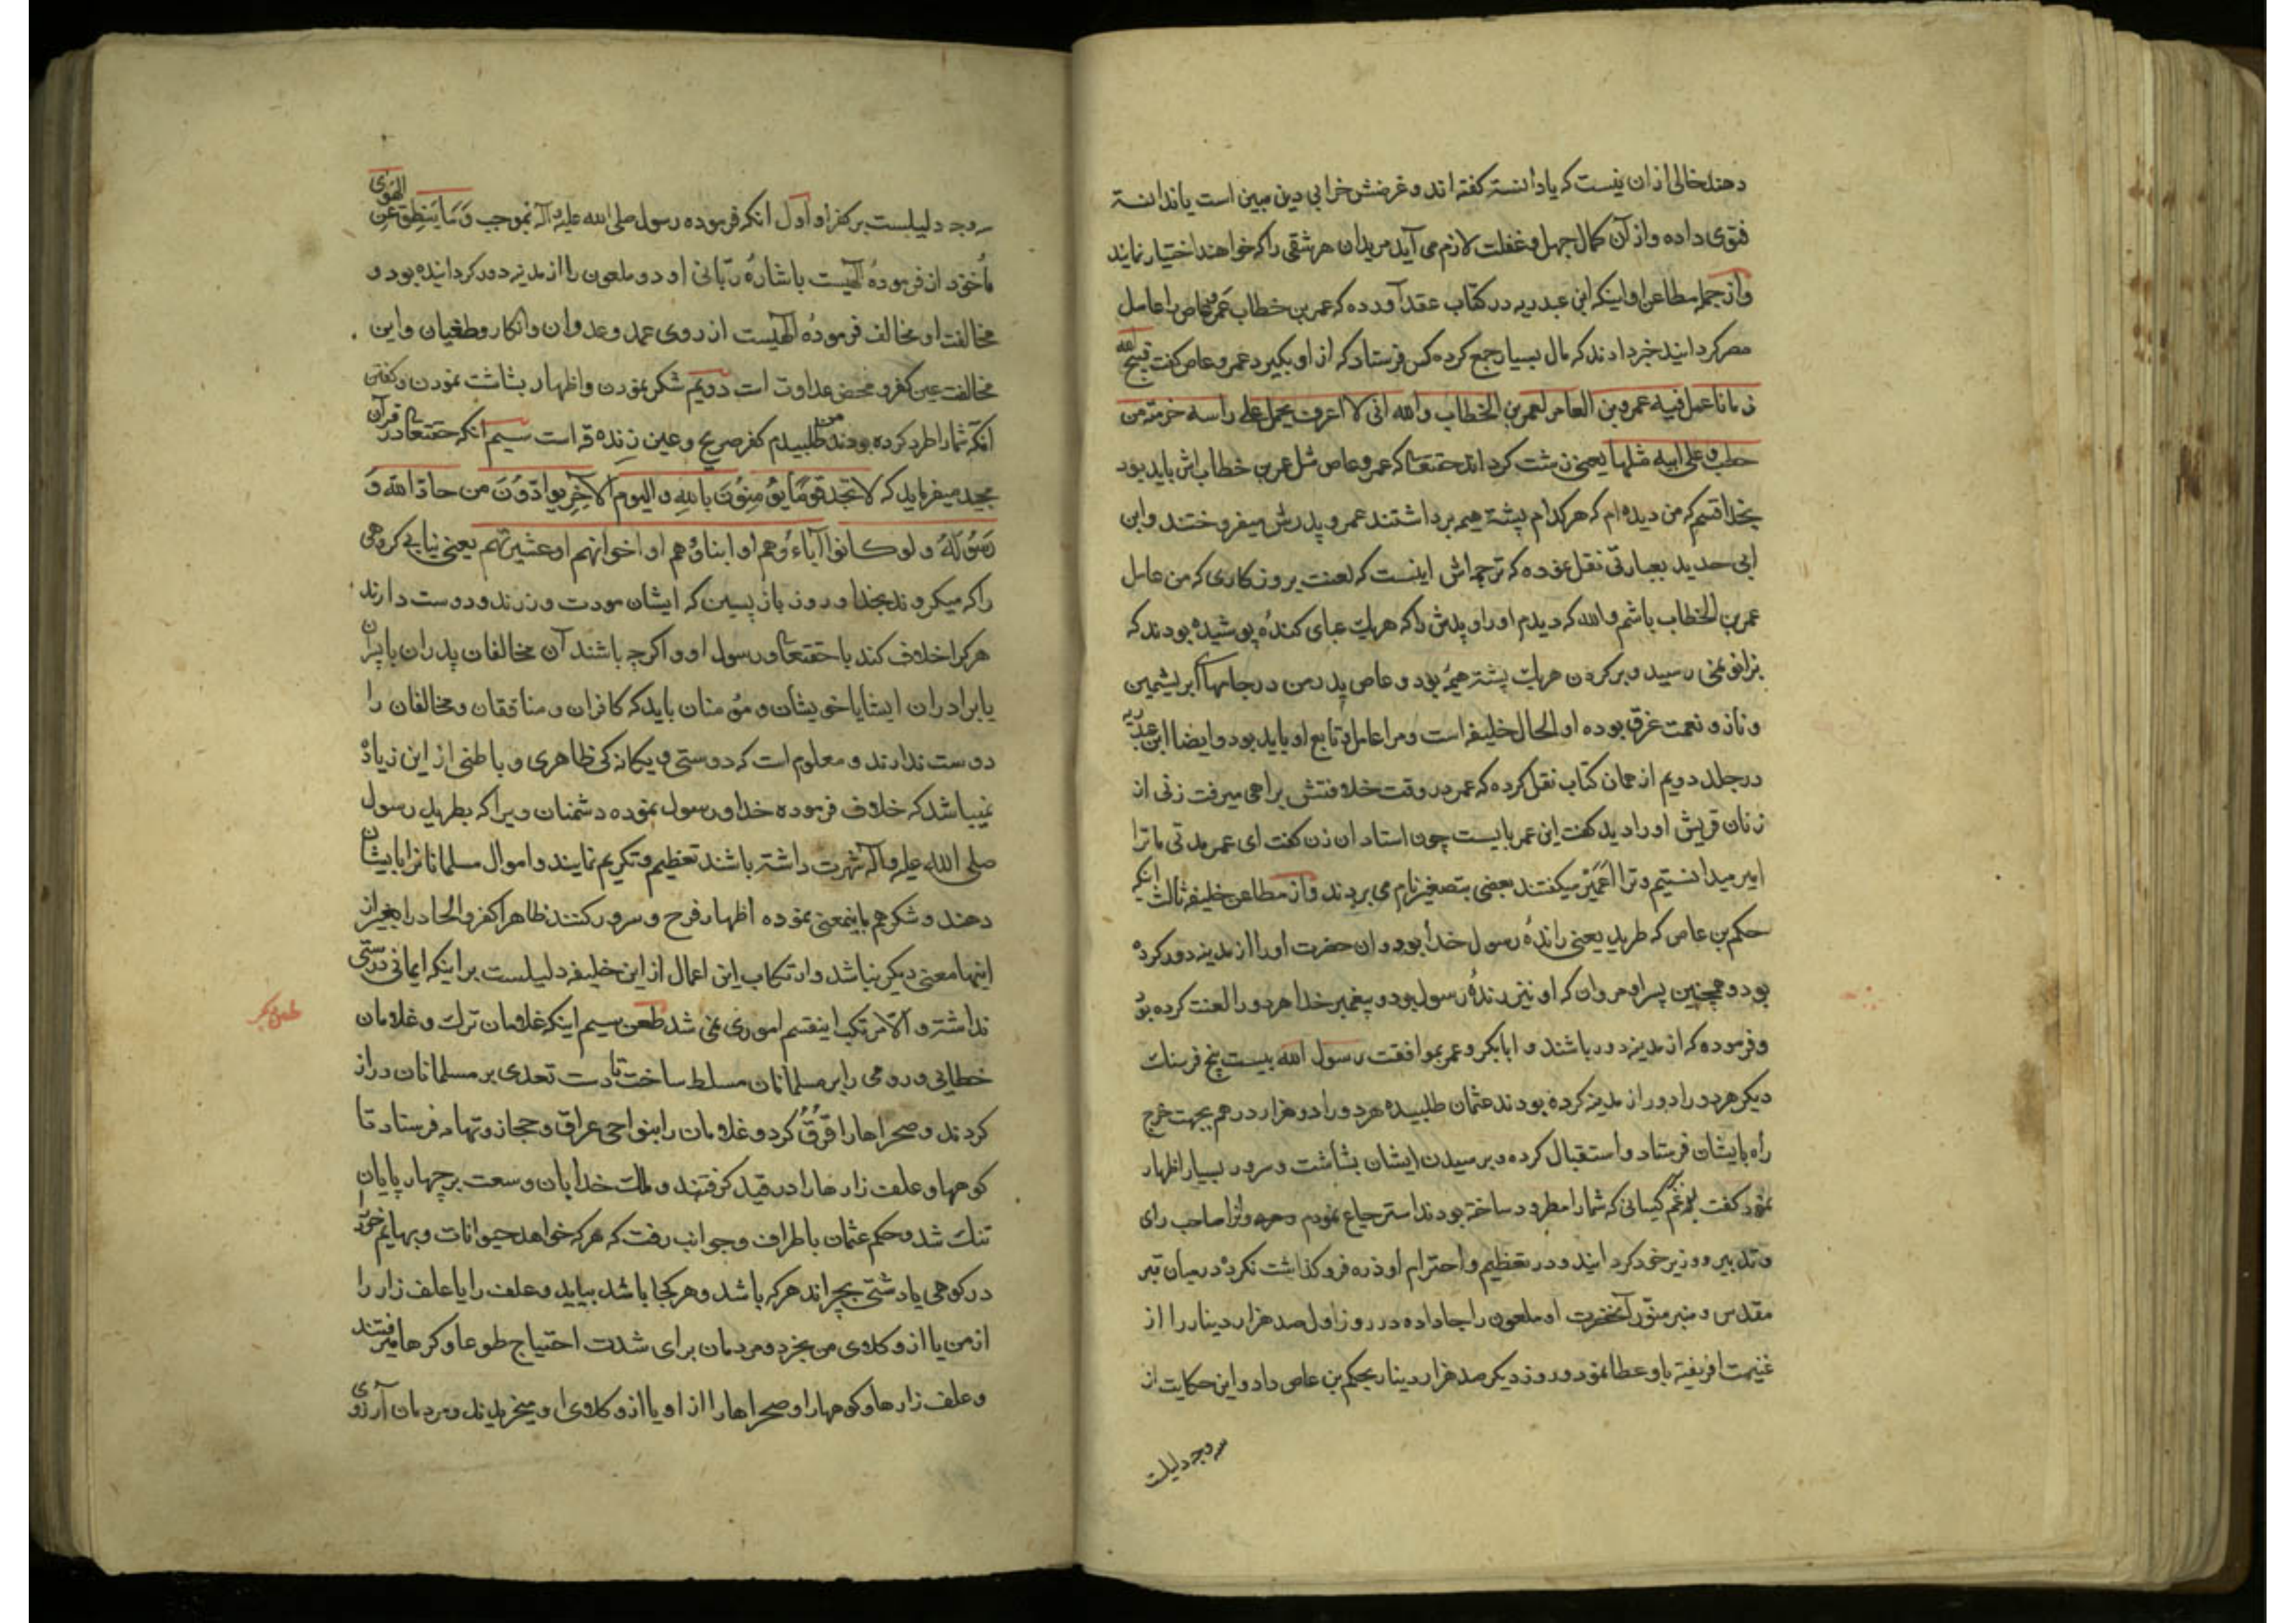 دهند خالی ازان نیست که یا دانسته گفته اند و غرضش خرابی دین مبین است یا ندانسته
فتوی داده و از آن کمال جهل و غفلت لازم می آید مریدان هر شقی را که خواهند اختیار نمایند
و از جمله مطاعن او اینکه ابن عبدربه در کتاب عقد آورده که عمر بن خطاب عمرو عاص را عامل
مصر گردانید خبر دادند که مال بسیار جمع کرده کس فرستاد که از او بگیرد عمرو عاص گفت قبح الله
زمانا عمل فیه عمرو بن العاص لعمر بن الخطاب والله انی لا اعرف یحمل علی راسه حزمة من
حطب و علی ابیه مثلها یعنی زشت گرداند حقتعالی که عمرو عاص مثل عمر بن خطاب اش باید بود
بخدا قسم که من دیده ام که هر کدام پشته هیمه برداشتند عمر و پدرش میفروختند و ابن
ابی حدید بعبارتی نقل نموده که ترجمه اش اینست که لعنت بر روزکاری که من عامل
عمر بن الخطاب باشم والله که دیدم او را و پدرش را که هر یک عبای کنده پوشیده بودند که
بزانو نمی رسید و بر کردن هر یک پشته هیمه بود و عاص پدر من در جامهای ابریشمین
و ناز و نعمت غرق بوده او الحال خلیفه است و مرا عامل و تابع او باید بود و ایضا ابن عبدربه
در جلد دویم از همان کتاب نقل کرده که عمر در وقت خلافتش براهی میرفت زنی از
زنان قریش او را دید گفت ای عمر بایست چون استاد ان زن گفت ای عمر مدتی ما ترا
میدانستیم و ترا عمیر میگفتند بعضی بتصغیر نام می بردند و از مطاعن خلیفه ثالث اینکه
حکم بن عاص که طرید یعنی رانده رسول خدا بود و ان حضرت او را از مدینه دور کرده
بود و همچنین پسر او مروان که او نیز رانده رسول بود و پیغمبر خدا هر دو را لعنت کرده بود
و فرموده که از مدینه دور باشند و ابابکر و عمر بموافقت رسول الله بیست پنج فرسنک
دیگر هر دو را دور از مدینه کرده بودند عثمان طلبیده هر دو را دو هزار درهم بجهت خرج
راه بایشان فرستاد و استقبال کرده و بر رسیدن ایشان بشاشت و سرور بسیار اظهار
نمود گفت برغم کسانی که شما را مطرود ساخته بودند استرجاع نمودم و صاحب رای
و تدبیر و وزیر خود کردانید و در تعظیم و احترام او ذره فروکذاشت نکرد در میان قبر
مقدس و منبر منور آنحضرت او ملعون را جا داده در روز اول صد هزار دینار را از
غنیمت افریقیه باو عطا نمود و روز دیگر صد هزار دینار بحکم بن عاص داد و این حکایت از
سه وجه دلیلست
سه وجه دلیلست بر کفر او اول انکه فرموده رسول صلی الله علیه و آله بموجب وما ینطق عن الهوی
ماخوذ از فرموده الهیست باشاره ربانی او دو ملعون را از مدینه دور کردانیده بود و
مخالفت او مخالف فرموده الهیست از روی عمد و عدوان و انکار و طغیان و این
مخالفت عین کفر و محض عداوت است دویم شکر نمودن و اظهار بشاشت نمودن و گفتن
انکه شما را طرد کرده بودند من طلبیدم کفر صریح و عین زندقه است سیم انکه حقتعالی در قرآن
مجید میفرماید که لا تجد قوما یؤمنون بالله والیوم الآخر یوادون من حاد الله و
رسوله ولو کانوا آباءهم او ابناؤهم او اخوانهم او عشیرتهم یعنی نیابی کروهی
را که میکروند بخدا و روز بازپسین که ایشان مودت ورزند و دوست دارند
هر که را خلاف کند با حقتعالی و رسول او و اکرچه باشند آن مخالفان پدران یا پسران
یا برادران ایشان یا خویشان و مومنان باید که کافران و منافقان و مخالفان را
دوست ندارند و معلوم است که دوستی و یکانکی ظاهری و باطنی از این زیاده
نمیباشد که خلاف فرموده خدا و رسول نموده دشمنان ویرا که بطرید رسول
صلی الله علیه و آله شهرت داشته باشند تعظیم و تکریم نمایند و اموال مسلمانان را بایشان
دهند و شکر هم باینمعنی نموده اظهار فرح و سرور کنند ظاهرا کفر و الحاد را بغیر از
اینها معنی دیگر نباشد و ارتکاب این اعمال از این خلیفه دلیلست بر اینکه ایمانی درستی
نداشته و الا مرتکب اینقسم اموری نمی شد طعن سیم اینکه غلامان ترک و غلامان
خطایی و رومی را بر مسلمانان مسلط ساخت تا دست تعدی بر مسلمانان دراز
کردند و صحراها را قرق کرد و غلامان را بنواحی عراق و حجاز و تهامه فرستاد تا
کوهها و علف زارها را در قید کرفتند و ملک خدا بان وسعت بر چهار پایان
تنک شد و حکم عثمان باطراف و جوانب رفت که هر که خواهد حیوانات و بهایم خود را
در کوهی یا دشتی بچراند هر که باشد و هر کجا باشد بیاید و علف را یا علف زار را
از من یا از وکلای من بخرد و مردمان برای شدت احتیاج طوعا و کرها میرفتند
و علف زارها و کوهها را و صحراها را از او یا از وکلای او میخریدند و مردمان آرزوی
طعن دیگر